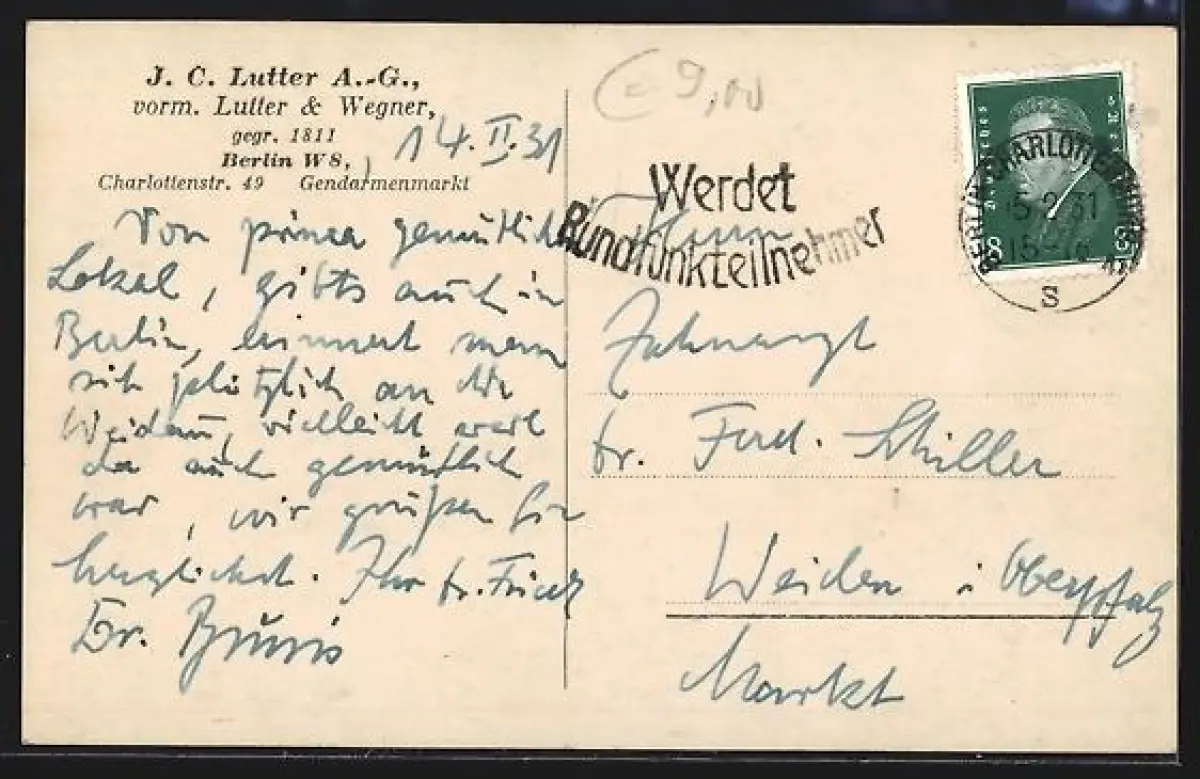 J. C. Lutter A.-G.,
vorm. Lutter & Wegner,
gegr. 1811
Berlin W 8,
Charlottenstr. 49 Gendarmenmarkt
14.II.31
Von prima gemütlich
Lokal, gibts auch in
Berlin, erinnert man
sich plötzlich an die
Weiden, vielleicht weil
da auch gemütlich
war, wir grüßen Sie
herzlichst. Ihr Dr.
Dr.
9,00
Werdet
Rundfunkteilnehmer
BERLIN-CHARLOTTENBURG
5.2.31
15-16
S
8 8
Herrn
Zahnarzt
Dr. Ferd. Schiller
Weiden i Oberpfalz
Markt